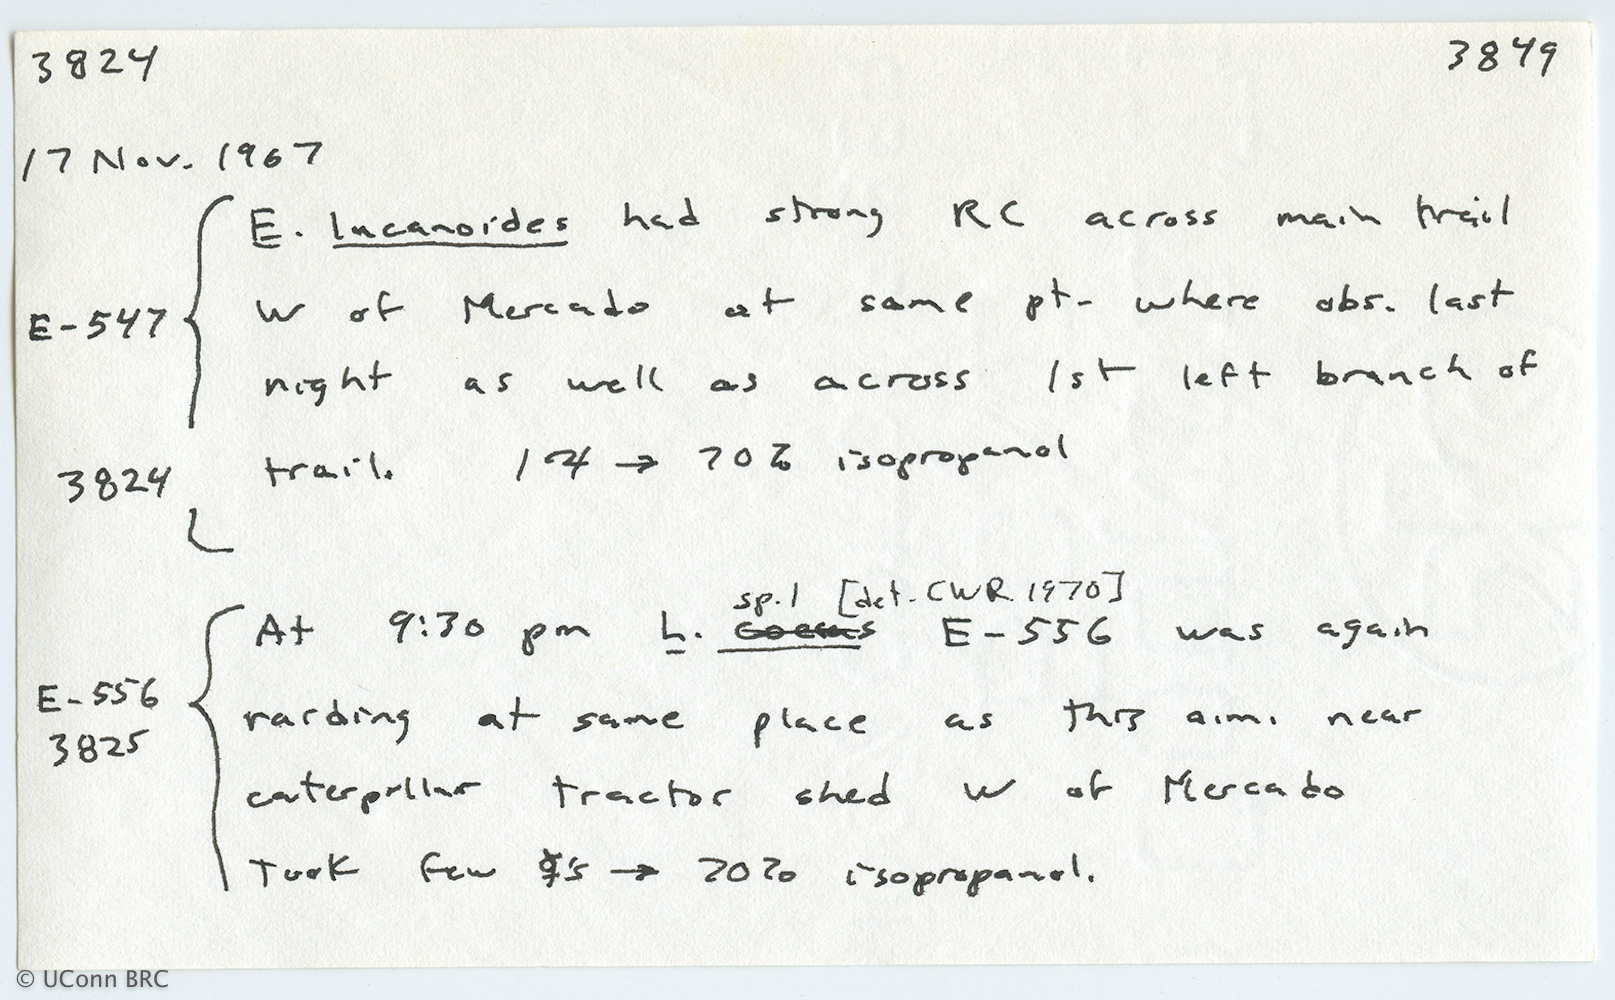 3824 3849
17 Nov. 1967
E. lucanoides had strong RC across main trail
E-547 W of Mercado at same pt. where obs. last
night as well as across 1st left branch of
3824 trail. 1 → 70% isopropanol
sp. 1 [det. CWR 1970]
At 9:30 pm L. E-556 was again
E-556 raiding at same place as this a.m. near
3825
caterpillar tractor shed W of Mercado
Took few ☿'s → 70% isopropanol.
© UConn BRC